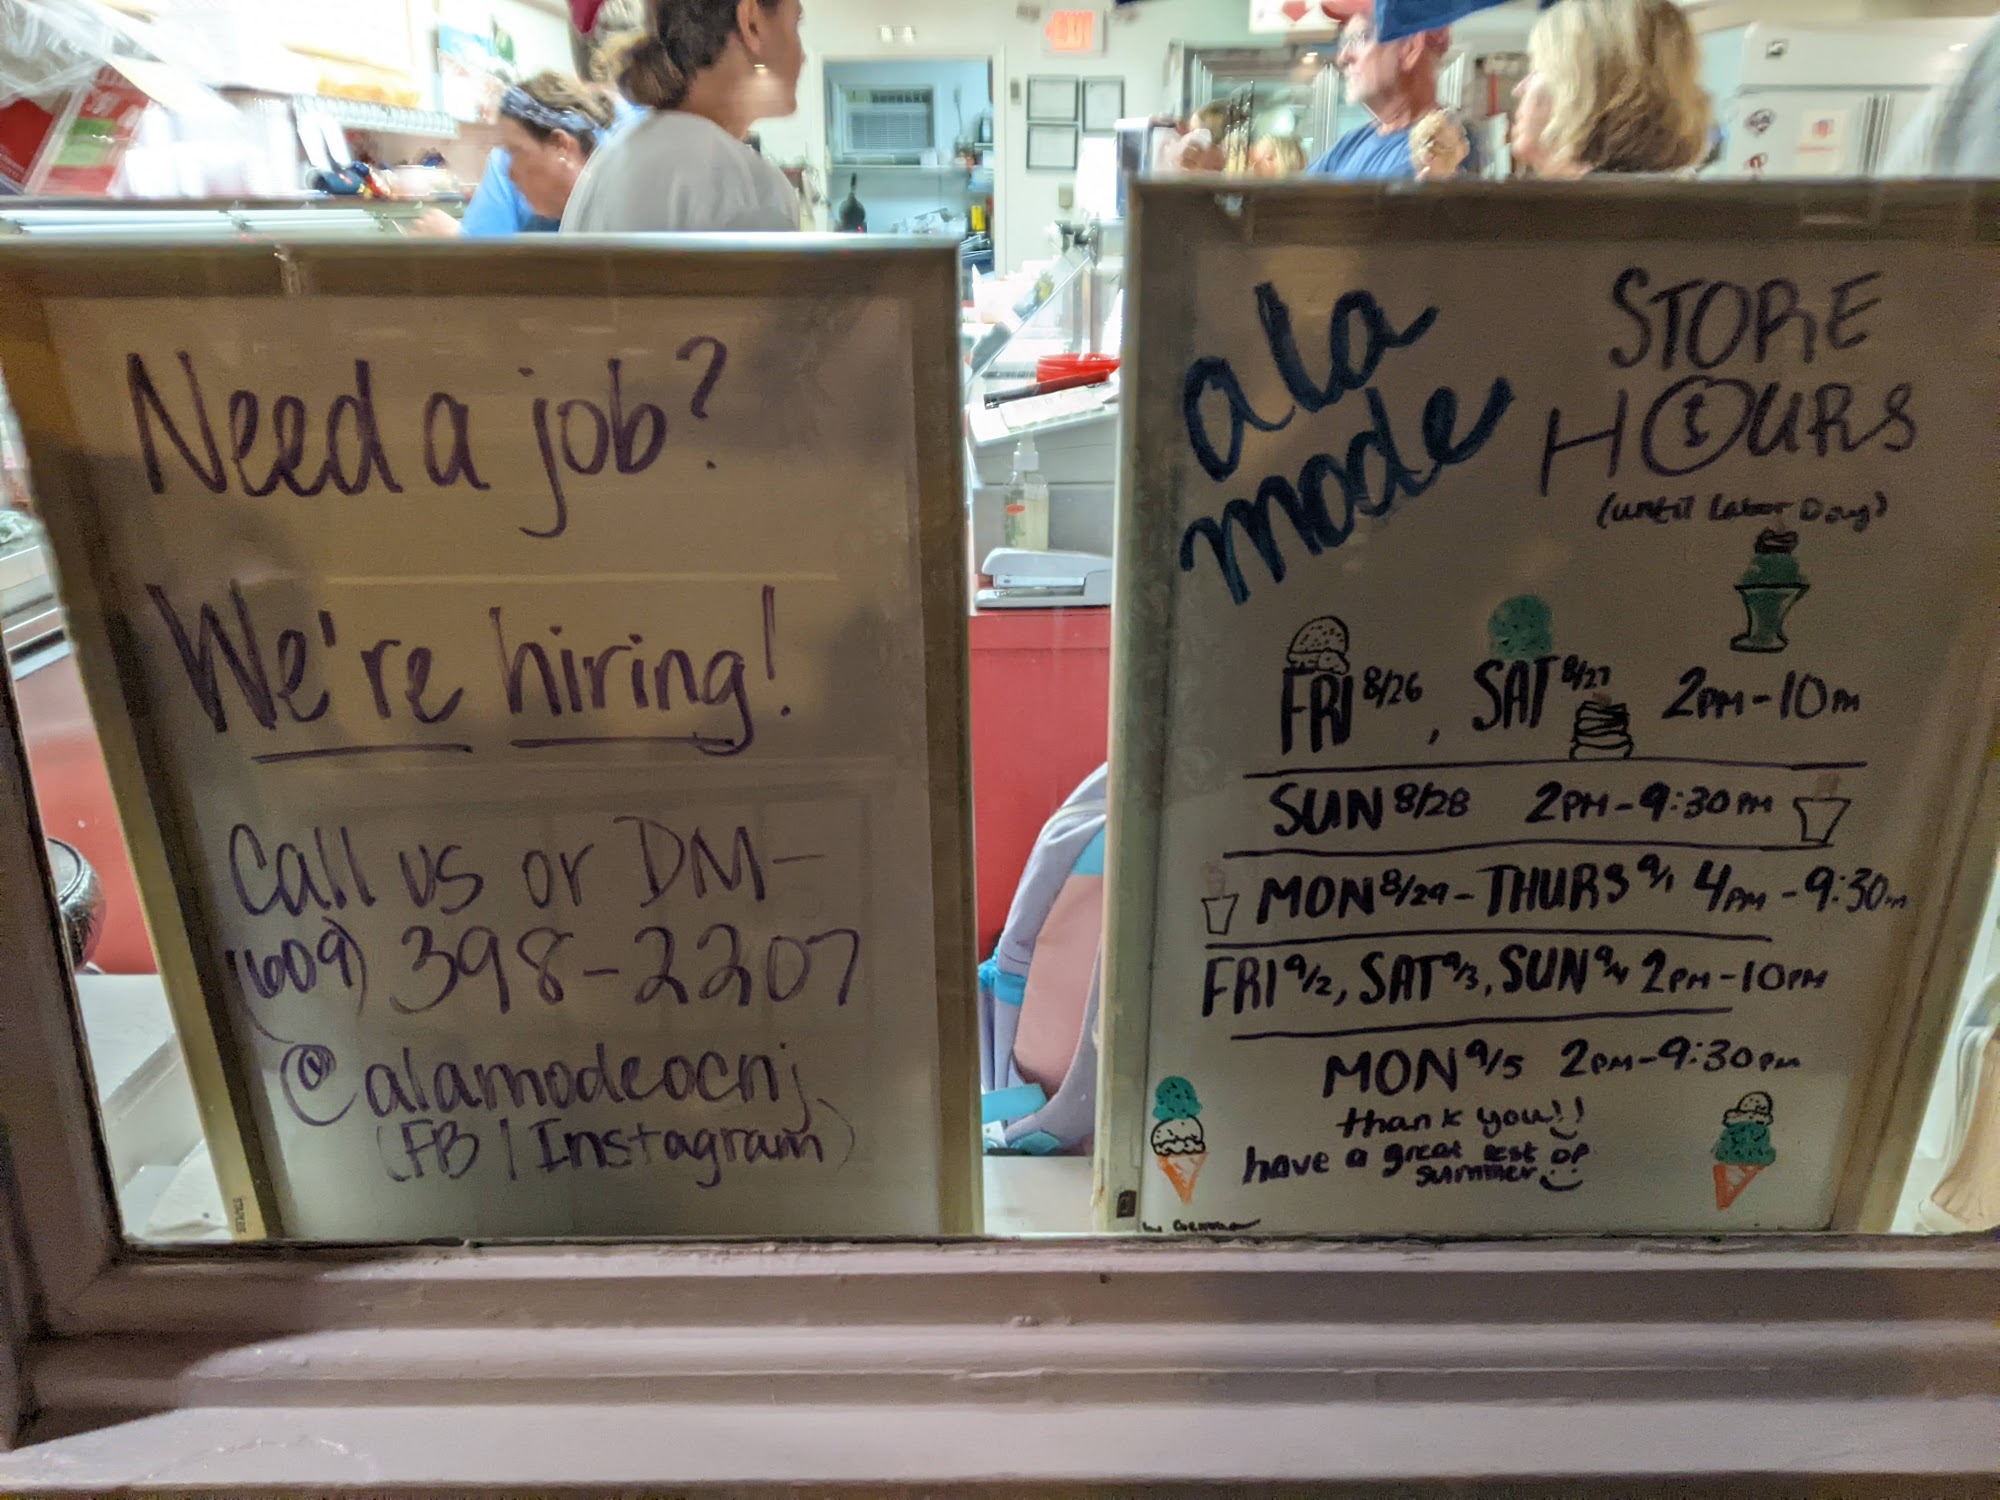 Need a job?
We're hiring!
Call us or DM-
(609) 398-2207
@alamodeocnj
(FB | Instagram)
a la
mode
STORE
HOURS
(until Labor Day)
FRI 8/26, SAT 8/27 2PM-10PM
SUN 8/28 2PM-9:30PM
MON 8/29-THURS 9/1 4PM-9:30PM
FRI 9/2, SAT 9/3, SUN 9/4 2PM-10PM
MON 9/5 2PM-9:30PM
thank you!!
have a great rest of
summer